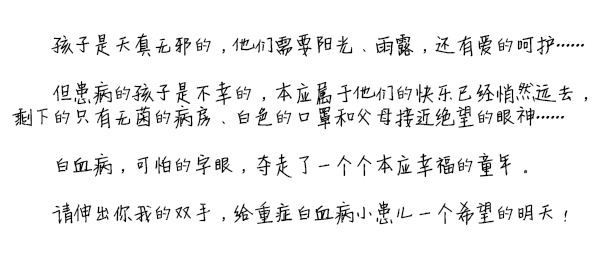 孩子是天真无邪的，他们需要阳光、雨露，还有爱的呵护……
但患病的孩子是不幸的，本应属于他们的快乐已经悄然远去，
剩下的只有无菌的病房、白色的口罩和父母接近绝望的眼神……
白血病，可怕的字眼，夺走了一个个本应幸福的童年。
请伸出你我的双手，给重症白血病小患儿一个希望的明天！